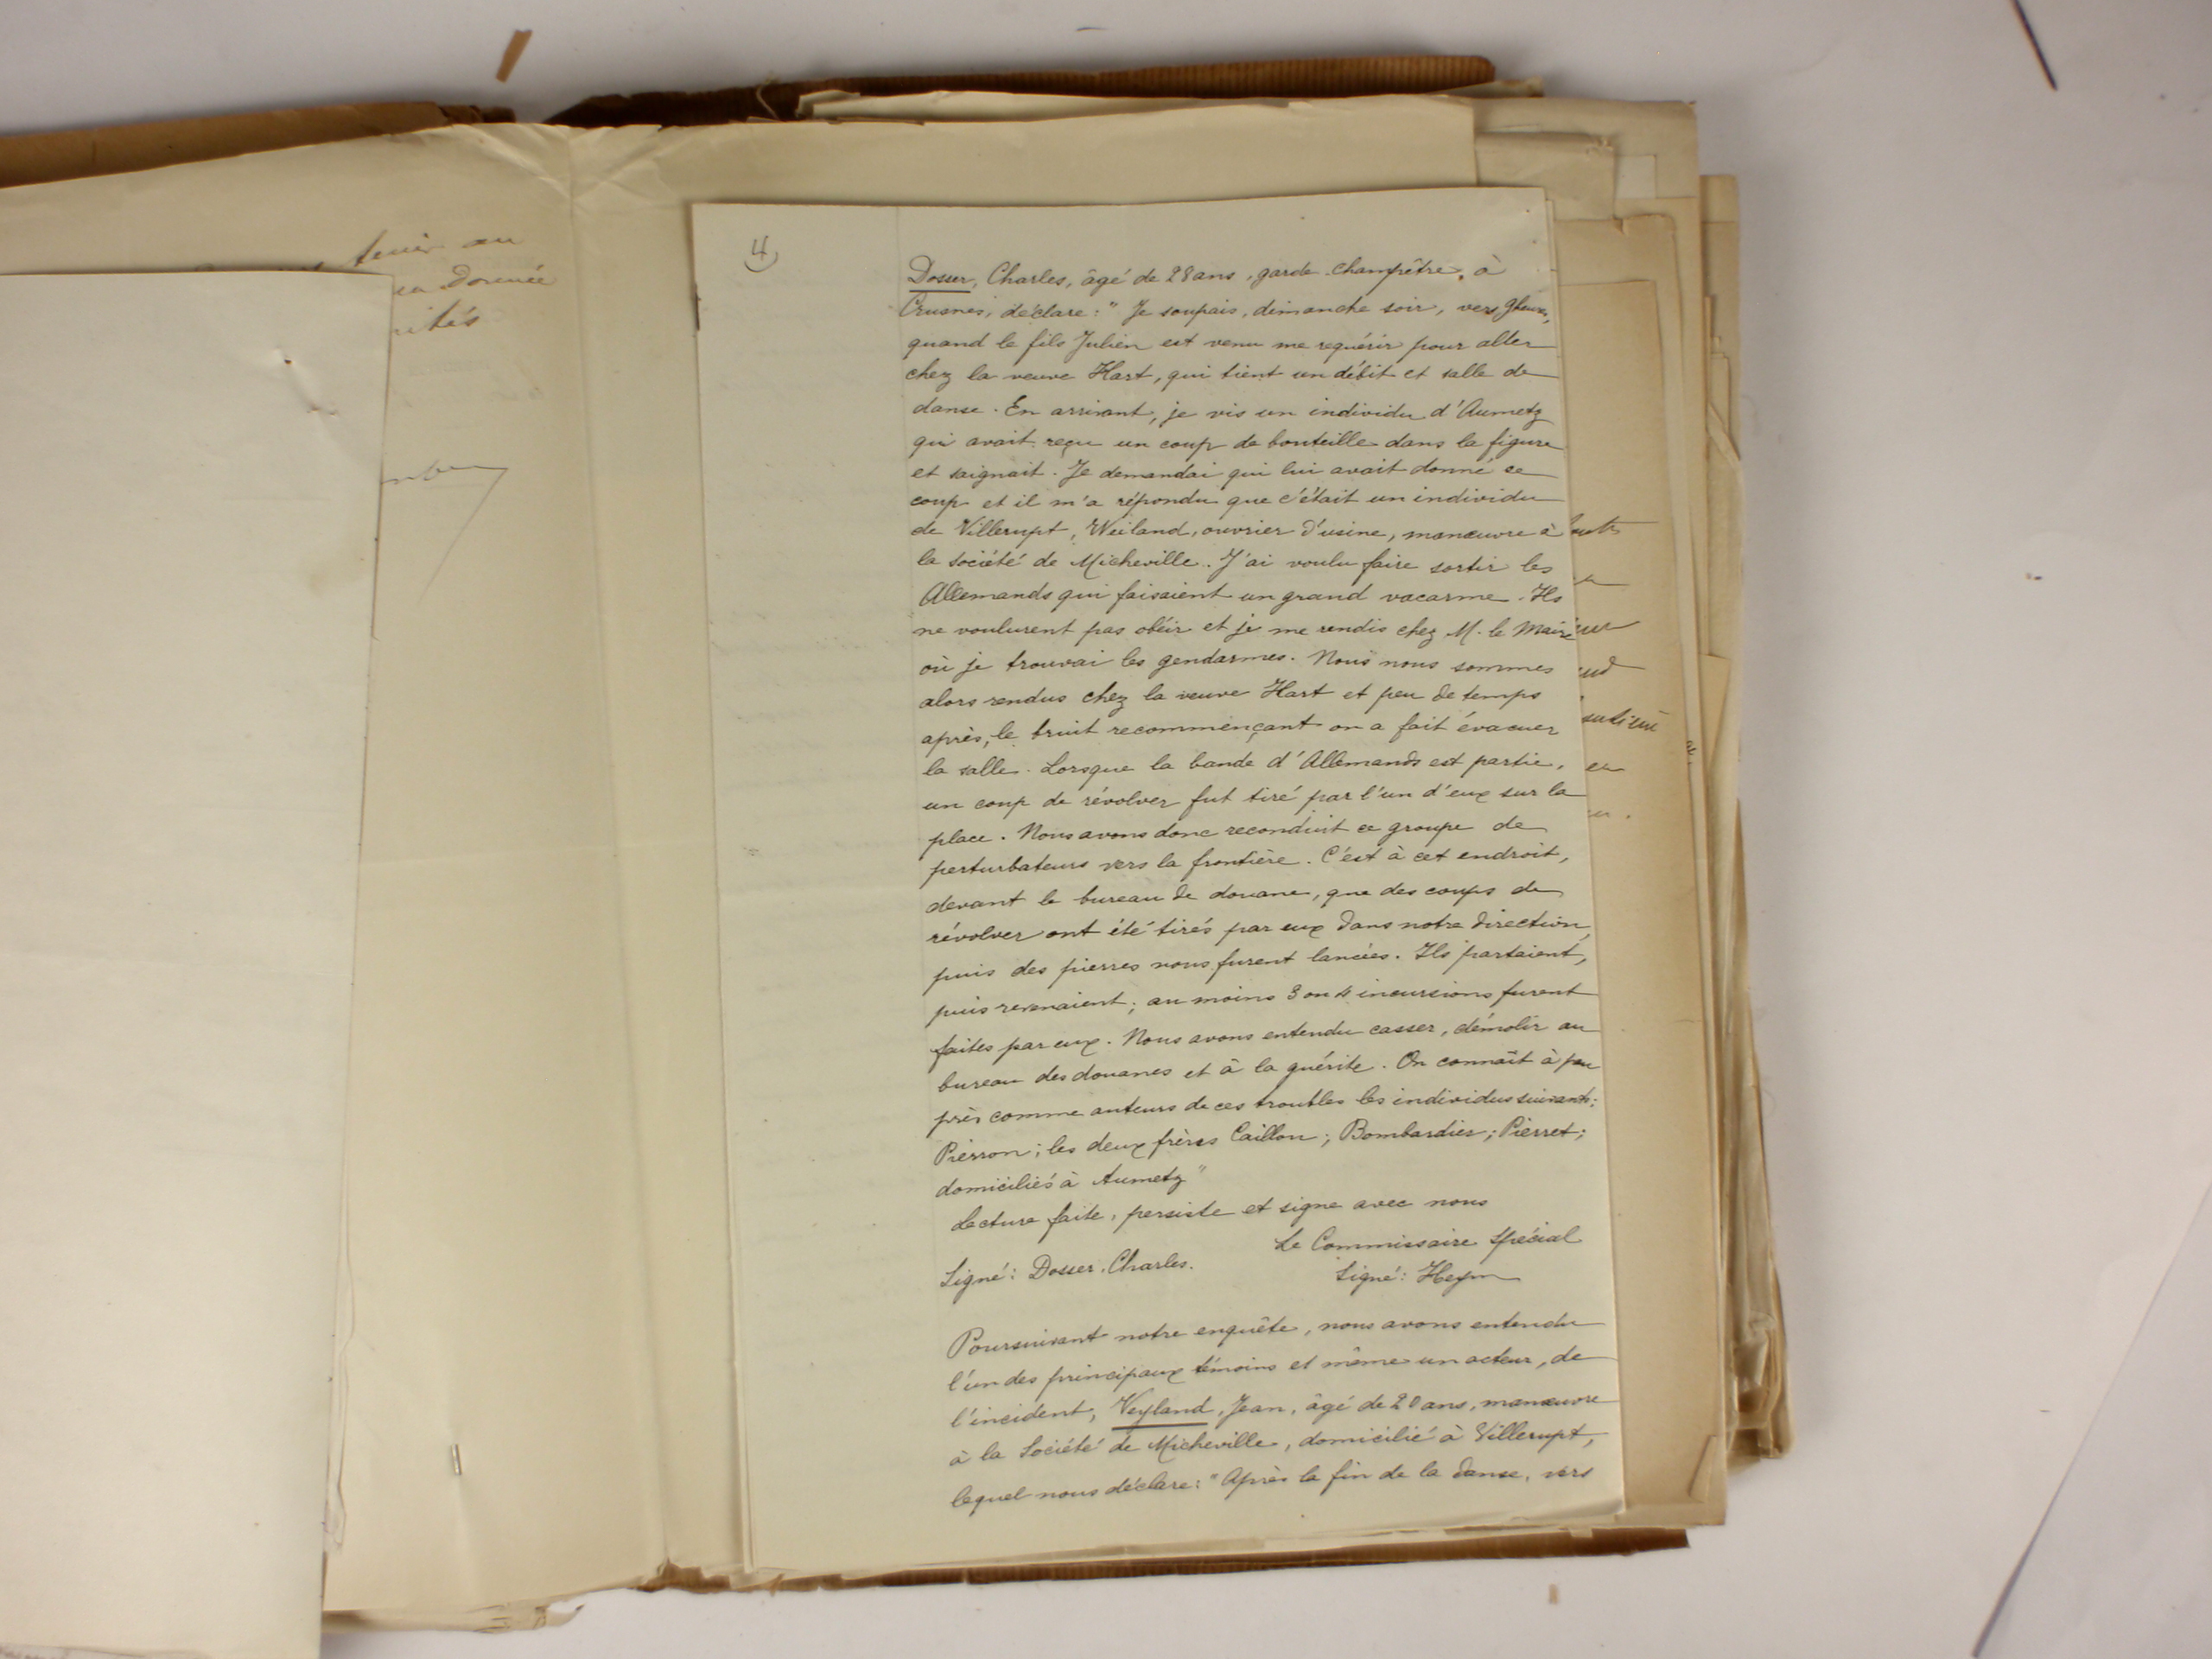 4
Dosser, Charles, âgé de 28 ans, garde-champêtre, à
Crusnes, déclare : " Je soupais, dimanche soir, vers 9 heures,
quand le fils Julien est venu me requérir pour aller
chez la veuve Hart, qui tient un débit et salle de
danse. En arrivant, je vis un individu d'Aumetz
qui avait reçu un coup de bouteille dans la figure
et saignait. Je demandai qui lui avait donné ce
coup et il m'a répondu que c'était un individu
de Villerupt, Weiland, ouvrier d'usine, manœuvre à
la Société de Micheville. J'ai voulu faire sortir les
Allemands qui faisaient un grand vacarme. Ils
ne voulurent pas obéir et je me rendis chez M. le Maire
où je trouvai les gendarmes. Nous nous sommes
alors rendus chez la veuve Hart et peu de temps
après, le bruit recommençant on a fait évacuer
la salle. Lorsque la bande d'Allemands est partie,
un coup de révolver fut tiré par l'un d'eux sur la
place. Nous avons donc reconduit ce groupe de
perturbateurs vers la frontière. C'est à cet endroit,
devant le bureau de douane, que des coups de
révolver ont été tirés par eux dans notre direction,
puis des pierres nous furent lancées. Ils partaient,
puis revenaient ; au moins 3 ou 4 incursions furent
faites par eux. Nous avons entendu casser, démolir au
bureau des douanes et à la guérite. On connaît à peu
près comme auteurs de ces troubles les individus suivants :
Pierron ; les deux frères Caillon ; Bombardier ; Pierret ;
domiciliés à Aumetz "
Lecture faite, persiste et signe avec nous
Le Commissaire Spécial
Signé : Dosser. Charles.
Signé : Heym
Poursuivant notre enquête, nous avons entendu
l'un des principaux témoins et même un acteur, de
l'incident, Veyland, Jean, âgé de 20 ans, manœuvre
à la Société de Micheville, domicilié à Villerupt,
lequel nous déclare : " Après la fin de la danse, vers
tenir au
donnée